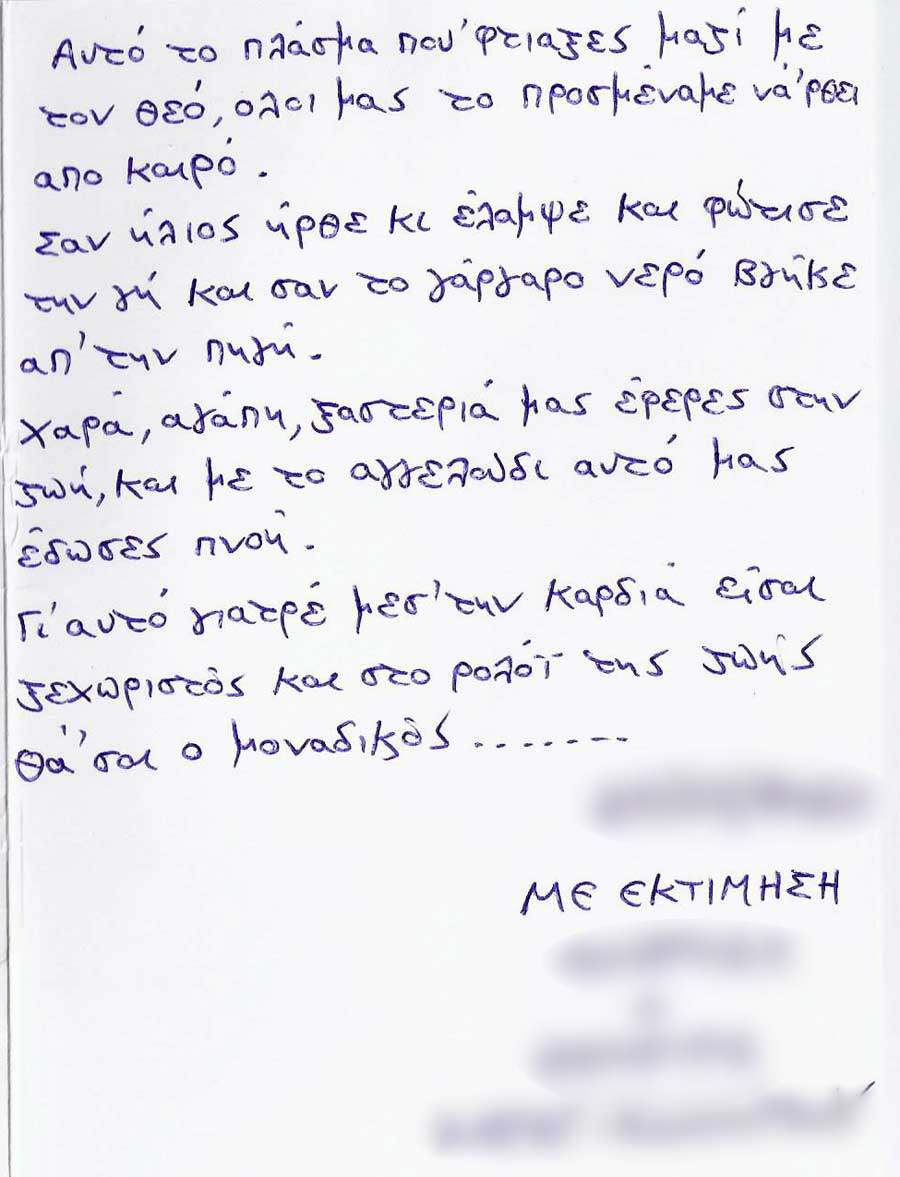 Αυτό το πλάσμα που'φτιαξες μαζί με
τον θεό, ολοι μας το προσμέναμε νά'ρθει
απο καιρό.
Σαν ήλιος ήρθε κι έλαμψε και φώτισε
την γή και σαν το γάργαρο νερό βγήκε
απ'την πηγή.
Χαρά, αγάπη, ξαστεριά μας έφερες στην
ζωή, και με το αγγελούδι αυτό μας
έδωσες πνοή.
Γι'αυτό γιατρέ μεσ'την καρδιά είσαι
ξεχωριστός και στο ρολόϊ της ζωής
θά'σαι ο μοναδικός .......
ΜΕ ΕΚΤΙΜΗΣΗ